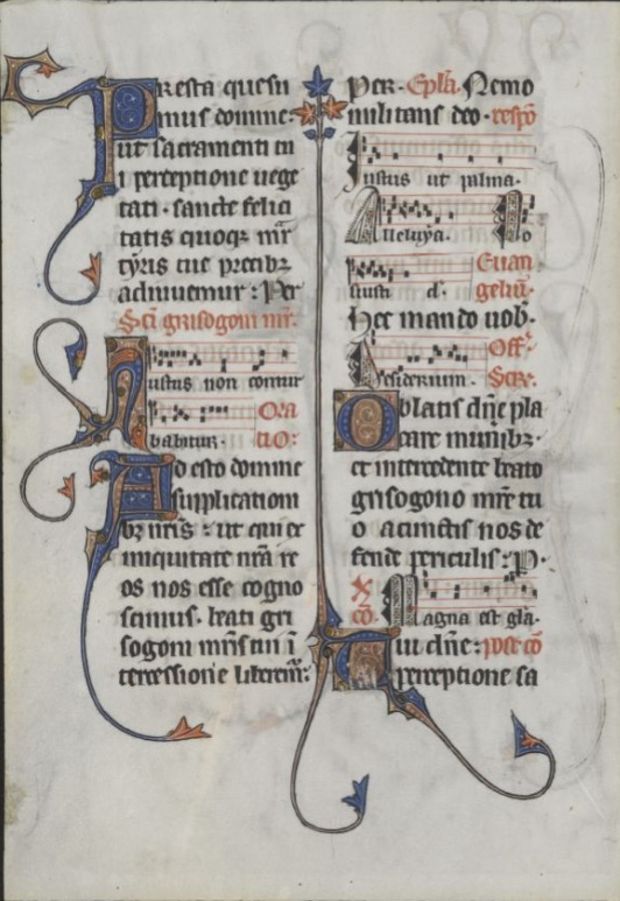 Presta quesu
mus domine:
ut sacramenti tu
i perceptione uege
tati · sancte felici
tatis quoqꝫ mr̄
tyris tue precibꝫ
adiuuemur : Per
Sc̄i grisogoni mr̄.
Iustus non contur
babitur. Ora
tio:
Ad esto domine
supplicationi
bꝫ nr̄is : ut qui ex
iniquitate nr̄a re
os nos esse cogno
scimus. beati gri
sogoni mr̄is tui ī
tercessione liberem̄:
Per. Epl̄a. Nemo
militans deo · respō
Iustus ut palma.
Alleluya. No
s iusti d. Euan
geliū.
Hec mando uob̄.
Desiderium. Off.
Secr̄.
Oblatis dn̄e pla
care munibꝫ ·
et intercedente beato
grisogono mr̄e tu
o a cunctis nos de
fende periculis : P.
cō. Magna est gl̄a.
Tui dn̄e: post cō
perceptione sa